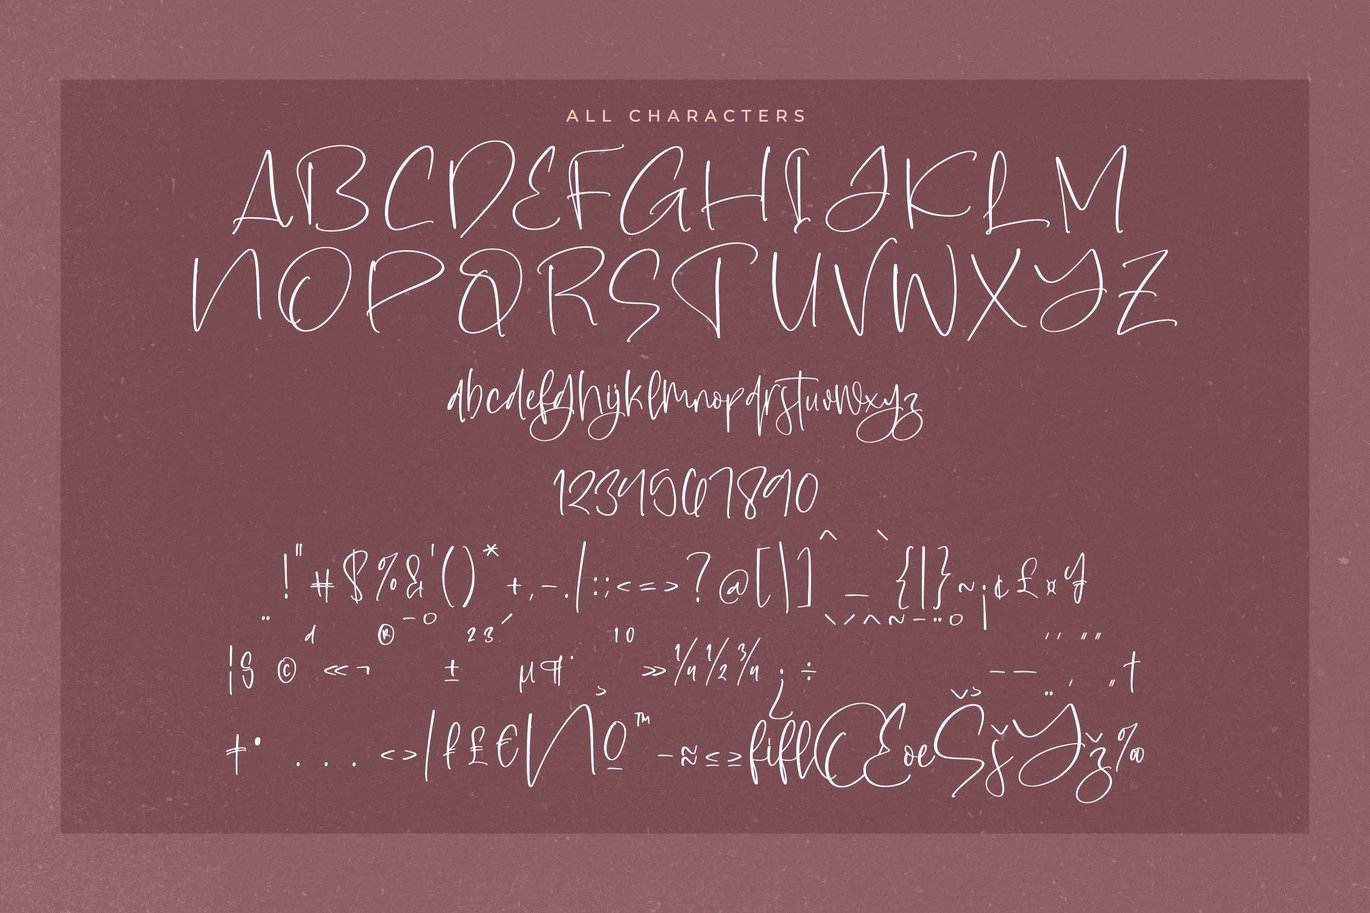 ALL CHARACTERS
ABCDEFGHIJKLM
NOPQRSTUVWXYZ
abcdefghijklmnopqrstuvwxyz
1234567890
!"#$%&'()*+,-./:;<=>?@[\]^_`{|}~¡¢£¤¥
¦§¨©ª«¬®¯°±²³´µ¶·¸¹º»¼½¾¿÷ˆ˜–—‘’‚“”„†
‡•...‹›⁄₣₤€№™−≈≤≥fiflŒœŠšŸž‰